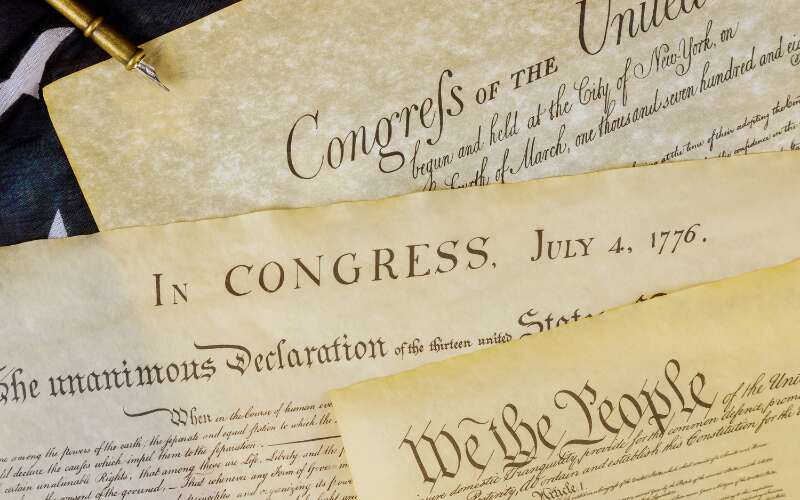 Congreſs OF THE United
begun and held at the City of New-York, on
Fourth of March, one thousand seven hundred and eig
time of their adopting the
In CONGRESS, July 4, 1776.
The unanimous Declaration of the thirteen united States
When in the Course of human eve
among the powers of the earth, the separate and equal station to which the
declare the causes which impel them to the separation.
certain unalienable Rights, that among these are Life, Liberty and the
That whenever any Form of Govern
We the People of the Unit
domestic Tranquility, provide for the common defence, promo
Posterity, do ordain and establish this Constitution for the
Article. I